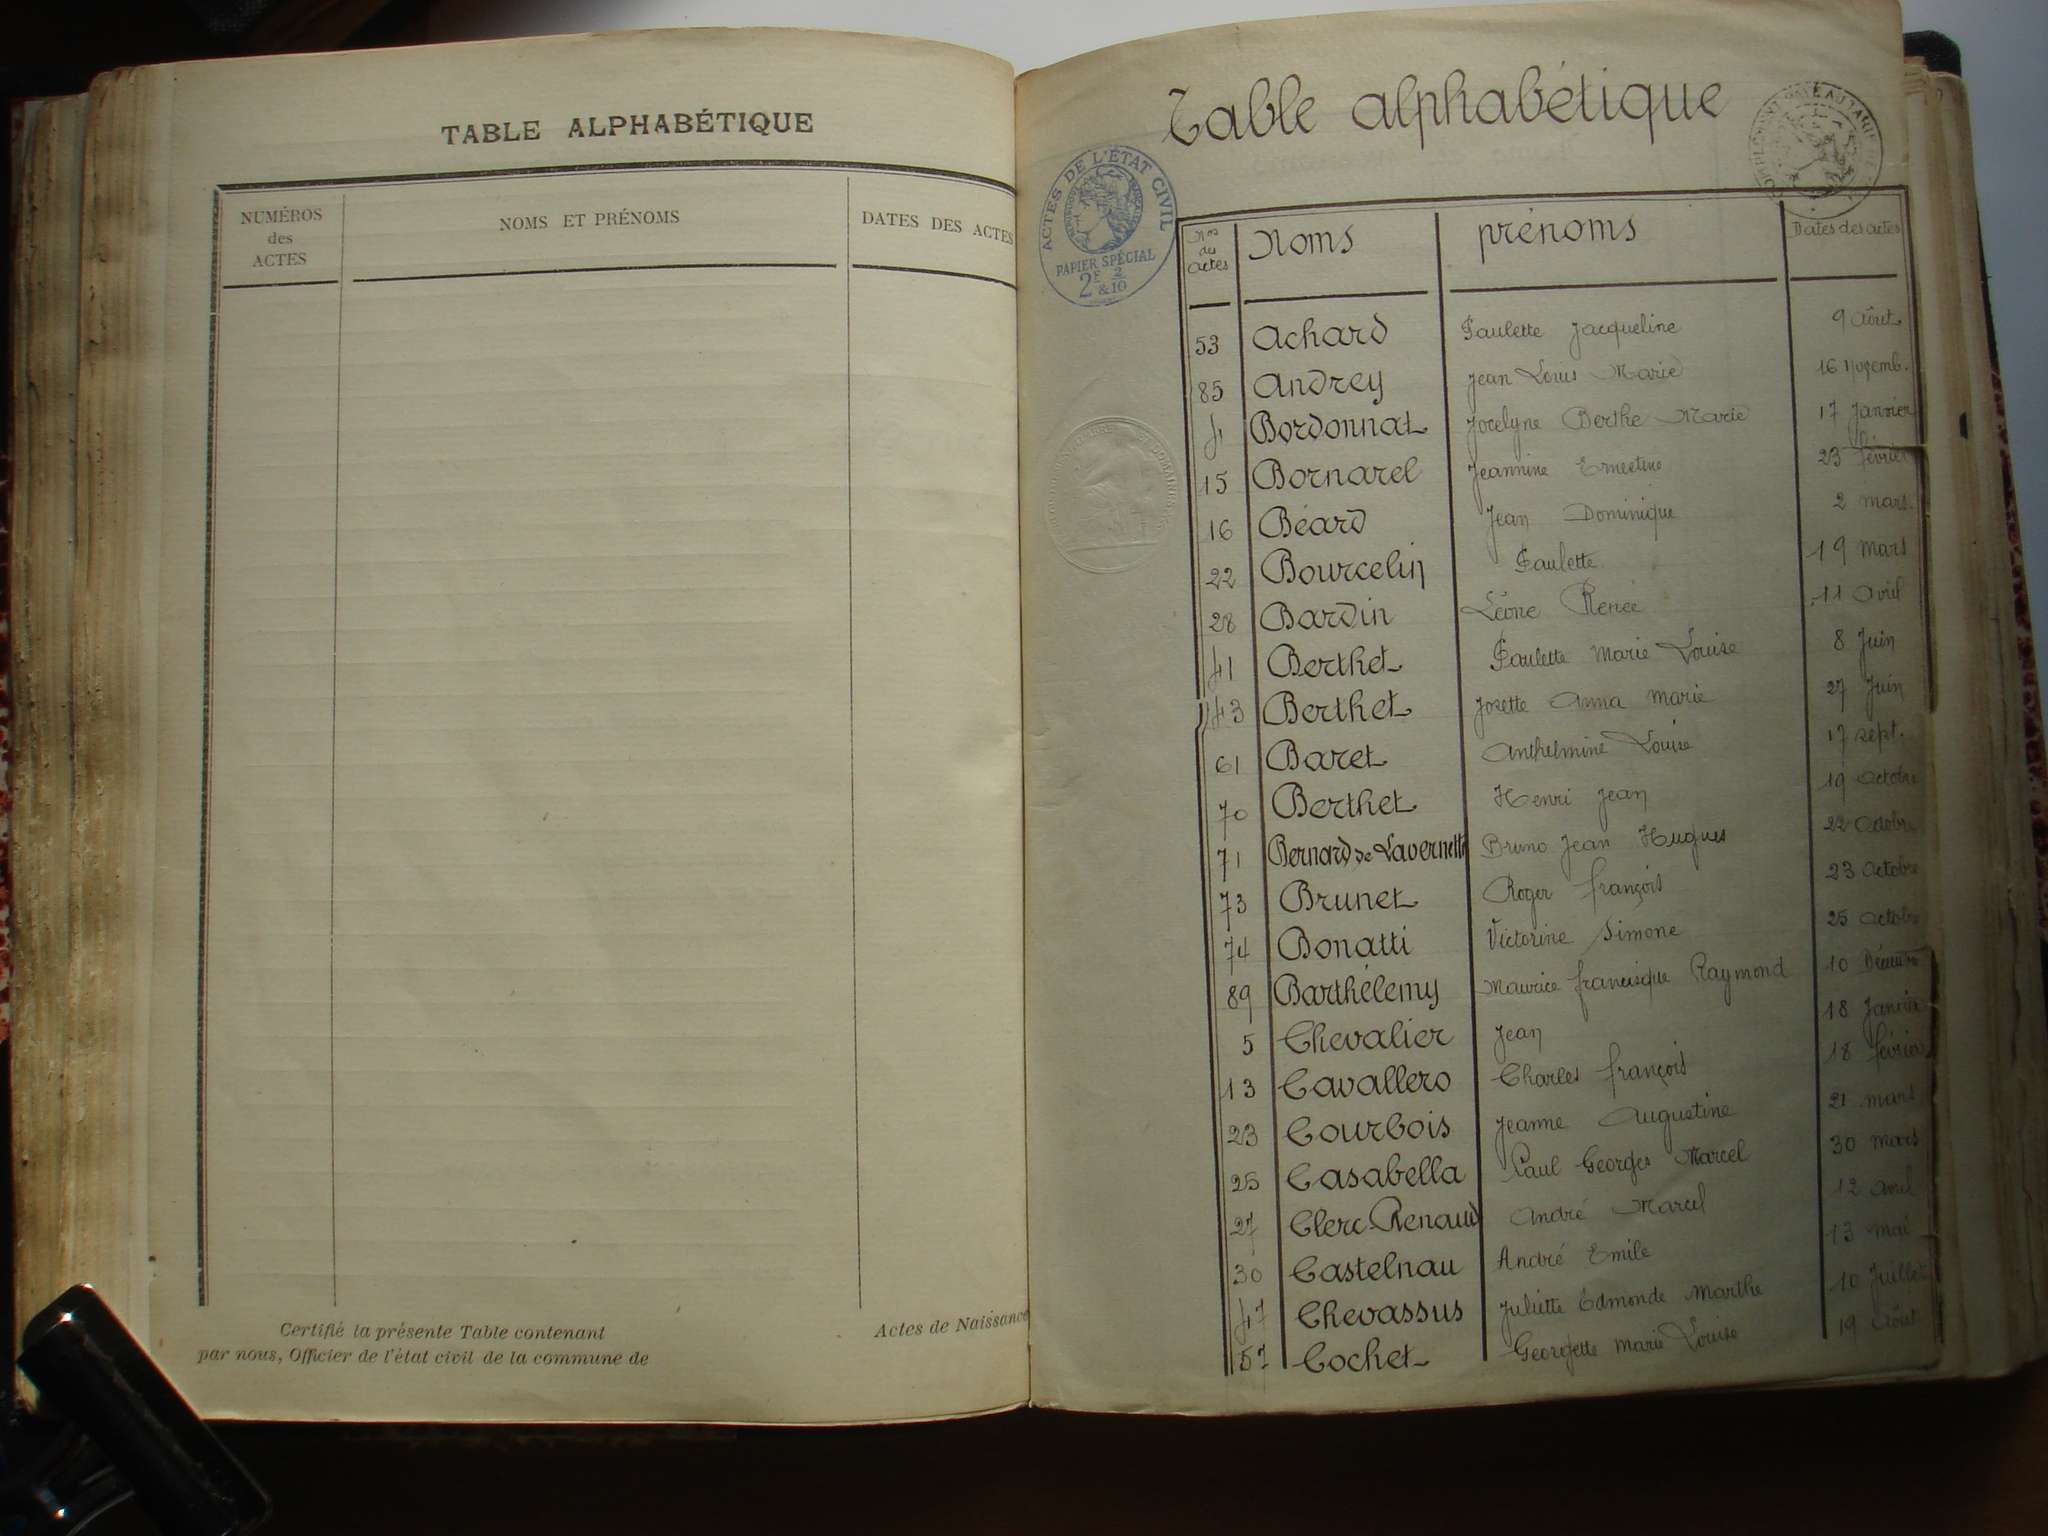 TABLE ALPHABÉTIQUE
NUMÉROS des ACTES NOMS ET PRÉNOMS DATES DES ACTES
Certifié la présente Table contenant Actes de Naissance
par nous, Officier de l'état civil de la commune de
Table alphabétique
ACTES DE L'ÉTAT CIVIL
PAPIER SPÉCIAL
2F 2/10
Nos des actes Noms prénoms Dates des actes
53 Achard Paulette Jacqueline 9 Août
85 Andrey Jean Louis Marie 16 Novemb.
4 Bordonnat Jocelyne Berthe Marie 17 Janvier
15 Bornarel Jeannine Ernestine 23 février
16 Béard Jean Dominique 2 mars
22 Bourcelin Paulette 19 mars
28 Bardin Léone Renée 11 avril
41 Berthet Paulette Marie Louise 8 Juin
43 Berthet Josette Anna Marie 27 Juin
61 Baret Anthelmine Louise 17 sept.
70 Berthet Henri Jean 19 Octobre
71 Bernard de Lavernette Bruno Jean Hugues 22 Octobre
73 Brunet Roger françois 23 Octobre
74 Bonatti Victorine Simone 25 Octobre
89 Barthélemy Maurice francisque Raymond 10 Décembre
5 Chevalier Jean 18 Janvier
13 Cavallero Charles françois 18 février
23 Courbois Jeanne Augustine 21 mars
25 Casabella Paul Georges Marcel 30 mars
27 Clerc Renaud André Marcel 12 avril
30 Castelnau André Emile 13 mai
47 Chevassus Juliette Edmonde Marthe 10 Juillet
57 Cochet Georgette Marie Louise 19 Août